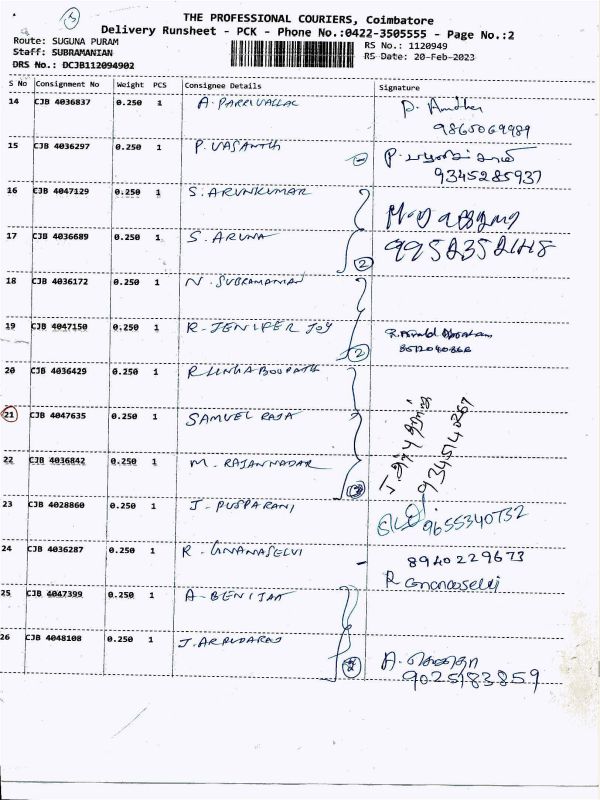 5
THE PROFESSIONAL COURIERS, Coimbatore
Delivery Runsheet - PCK - Phone No.:0422-3505555 - Page No.:2
Route: SUGUNA PURAM
RS No.: 1120949
Staff: SUBRAMANIAN
RS Date: 20-Feb-2023
DRS No.: DCJB112094902
S No Consignment No Weight PCS Consignee Details Signature
14 CJB 4036837 0.250 1 A. PARRIVALLAL
9865069989
15 CJB 4036297 0.250 1 P. VASANTH P.
9345285937
16 CJB 4047129 0.250 1 S. ARUNKUMAR
17 CJB 4036689 0.250 1 S. ARUNA 2 9952352148
18 CJB 4036172 0.250 1 N. SUBRAMANIAN
19 CJB 4047150 0.250 1 R. JENIFER JOY 2
20 CJB 4036429 0.250 1
21 CJB 4047635 0.250 1 SAMUEL RAJA
22 CJB 4036842 0.250 1 M. RAJANNADAR 3
9345140267
23 CJB 4028860 0.250 1 J. PUSPARANI
9655340732
24 CJB 4036287 0.250 1 R. GNANASELVI - 8940229673
R Gnanaselvi
25 CJB 4047399 0.250 1 A. BENIJAA
26 CJB 4048108 0.250 1 J. ARPUDARAJ 2
A.
9025183859